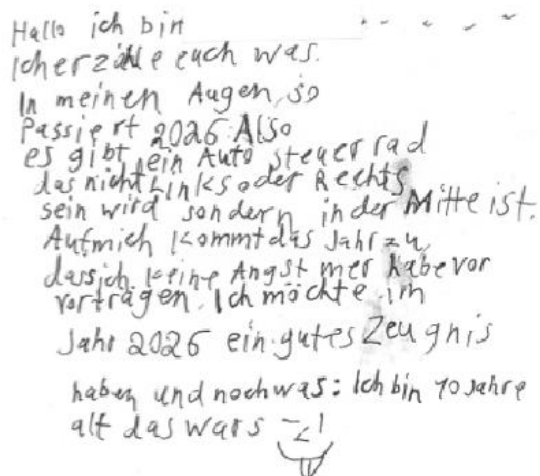 Hallo ich bin
Ich erzälle euch was.
In meinen Augen, so
Passiert 2026: Also
es gibt ein Auto steuerrad
das nicht Links oder Rechts
sein wird sondern in der Mitte ist.
Auf mich kommt das Jahr zu,
dass ich keine Angst mer habe vor
vorträgen. Ich möchte im
Jahr 2026 ein gutes Zeugnis
haben und noch was: Ich bin 10 Jahre
alt das wars